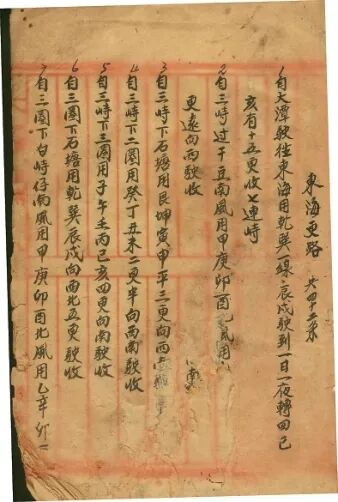 東海更路 共四十二条
1 自大潭駛往東海用乾巽一線辰戌駛到一日一夜轉回己
亥有十五更收七連峙
2 自三峙过干豆南風用甲庚卯酉北風用
更遠向西駛收
3 自三峙下石塘用艮坤寅申平三更向西南
(東)
4 自三峙下二圈用癸丁丑未二更半向西南駛收
5 自三峙下三圈用子午壬丙己亥四更向南駛收
6 自三圈下石塘用乾巽辰戌向西北五更駛收
7 自三圈下白峙仔南風用甲庚卯酉北風用乙辛卯